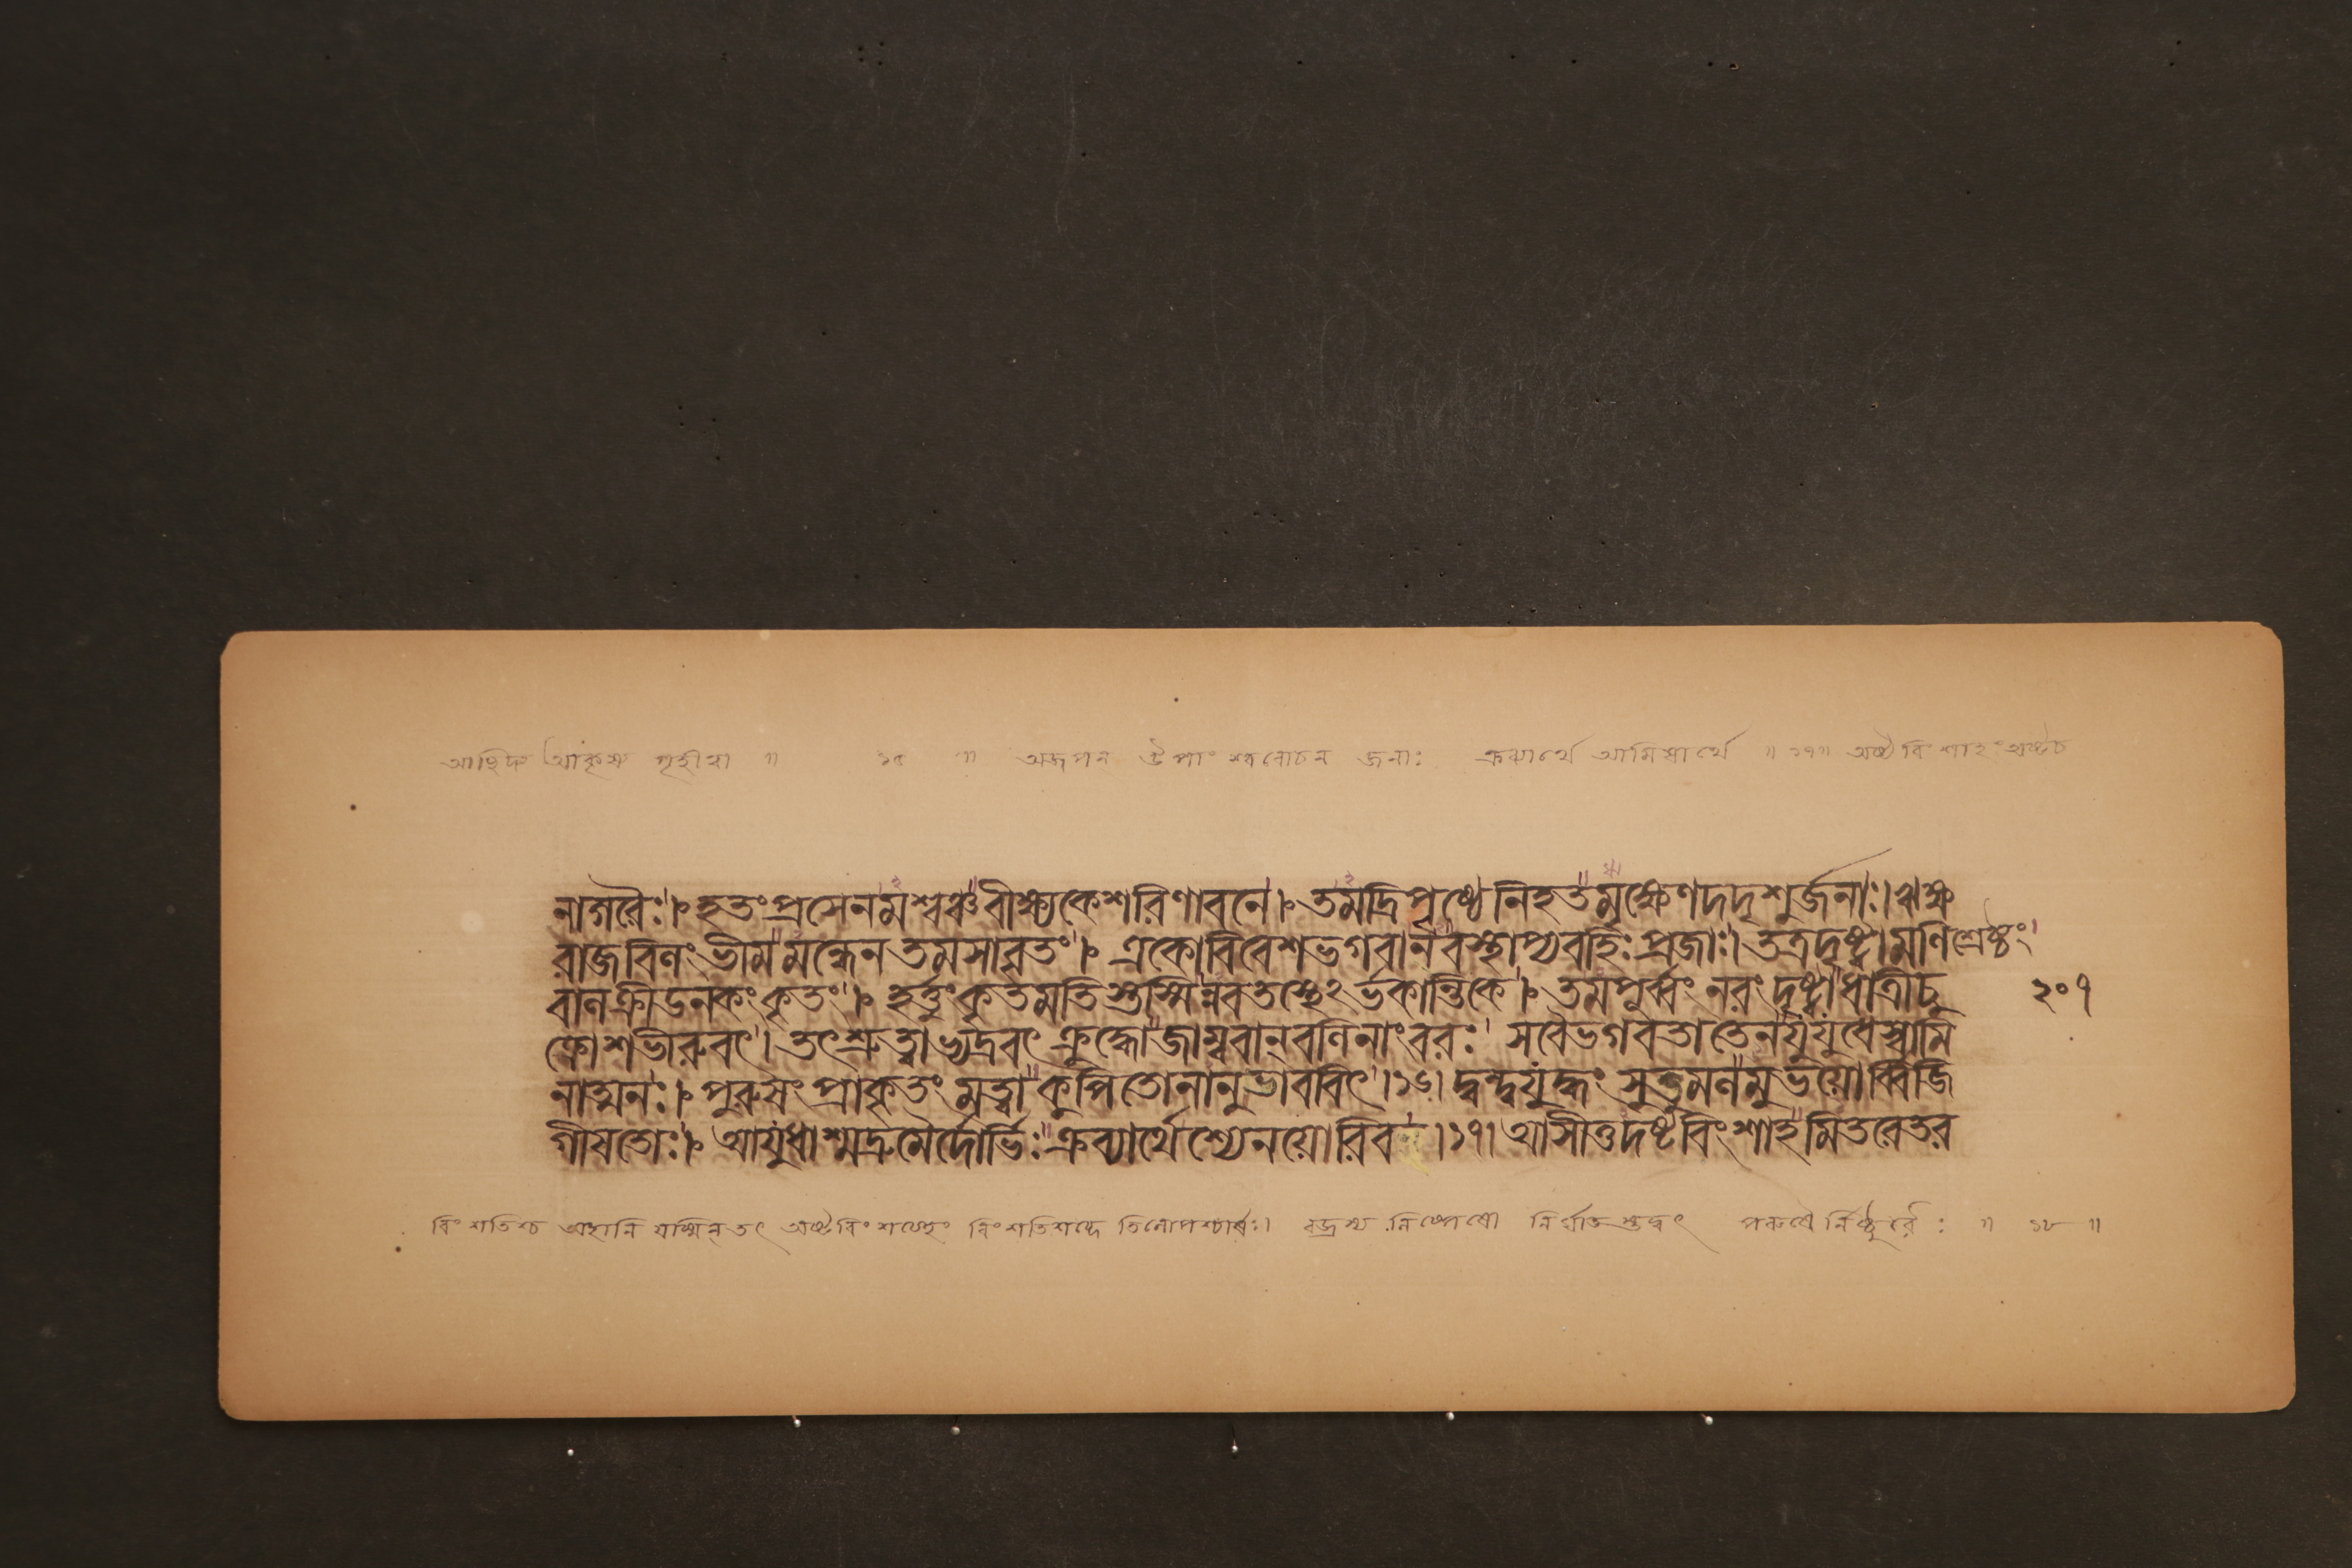 আছিদ্য আকৃষ্য গৃহীত্বা ॥ ১৫ ॥ অজপন জনাঃ ক্রব্যার্থে আমিষার্থে ॥ ১৭॥ অষ্টবিংশাহং অষ্টচ
নাগরৈঃ।১ হতং প্রসেনমশ্বঞ্চ বীক্ষ্য কেশরিণা বনে।১ তমদ্রিপৃষ্ঠে নিহতমৃক্ষেণ দদৃশুর্জনাঃ। ঋক্ষ
রাজবিলং ভীমমন্ধেন তমসাবৃতং।১ একো বিবেশ ভগবানবস্থাপ্য বহিঃ প্রজাঃ। তত্র দৃষ্ট্বা মণিশ্রেষ্ঠং
বালক্রীডনকং কৃতং।১ হর্ত্তুং কৃতমতিস্তস্মিন্নবতস্থেঽর্ভকান্তিকে।১ তমপূর্ব্বং নরং দৃষ্ট্বা ধাত্রী চু ২০৭
ক্রোশ ভীরুবৎ। তৎ শ্রুত্বাভ্যদ্রবৎ ক্রুদ্ধো জাম্ববান্ বলিনাং বরঃ। স বৈ ভগবতা তেন যুযুধে স্বামি
নাত্মনঃ।১ পুরুষং প্রাকৃতং মত্বা কুপিতো নানুভাববিৎ।১৬। দ্বন্দ্বযুদ্ধং সুতুমলমুভয়োর্ব্বিজি
গীষতোঃ।১ আযুধাশ্মদ্রুমৈর্দোর্ভিঃ ক্রব্যার্থে শ্যেনয়োরিব।১৭। আসীত্তদষ্টবিংশাহমিতরেতর
বিংশতিশ্চ অহানি যস্মিন্ তৎ অষ্টবিংশত্যহং বিংশতিশব্দে তিলোপশ্চার্ষঃ। বজ্রস্য নিষ্পেষো নির্ঘাতস্তদ্বৎ পরুষৈর্নিষ্ঠুরৈঃ ॥ ১৮ ॥